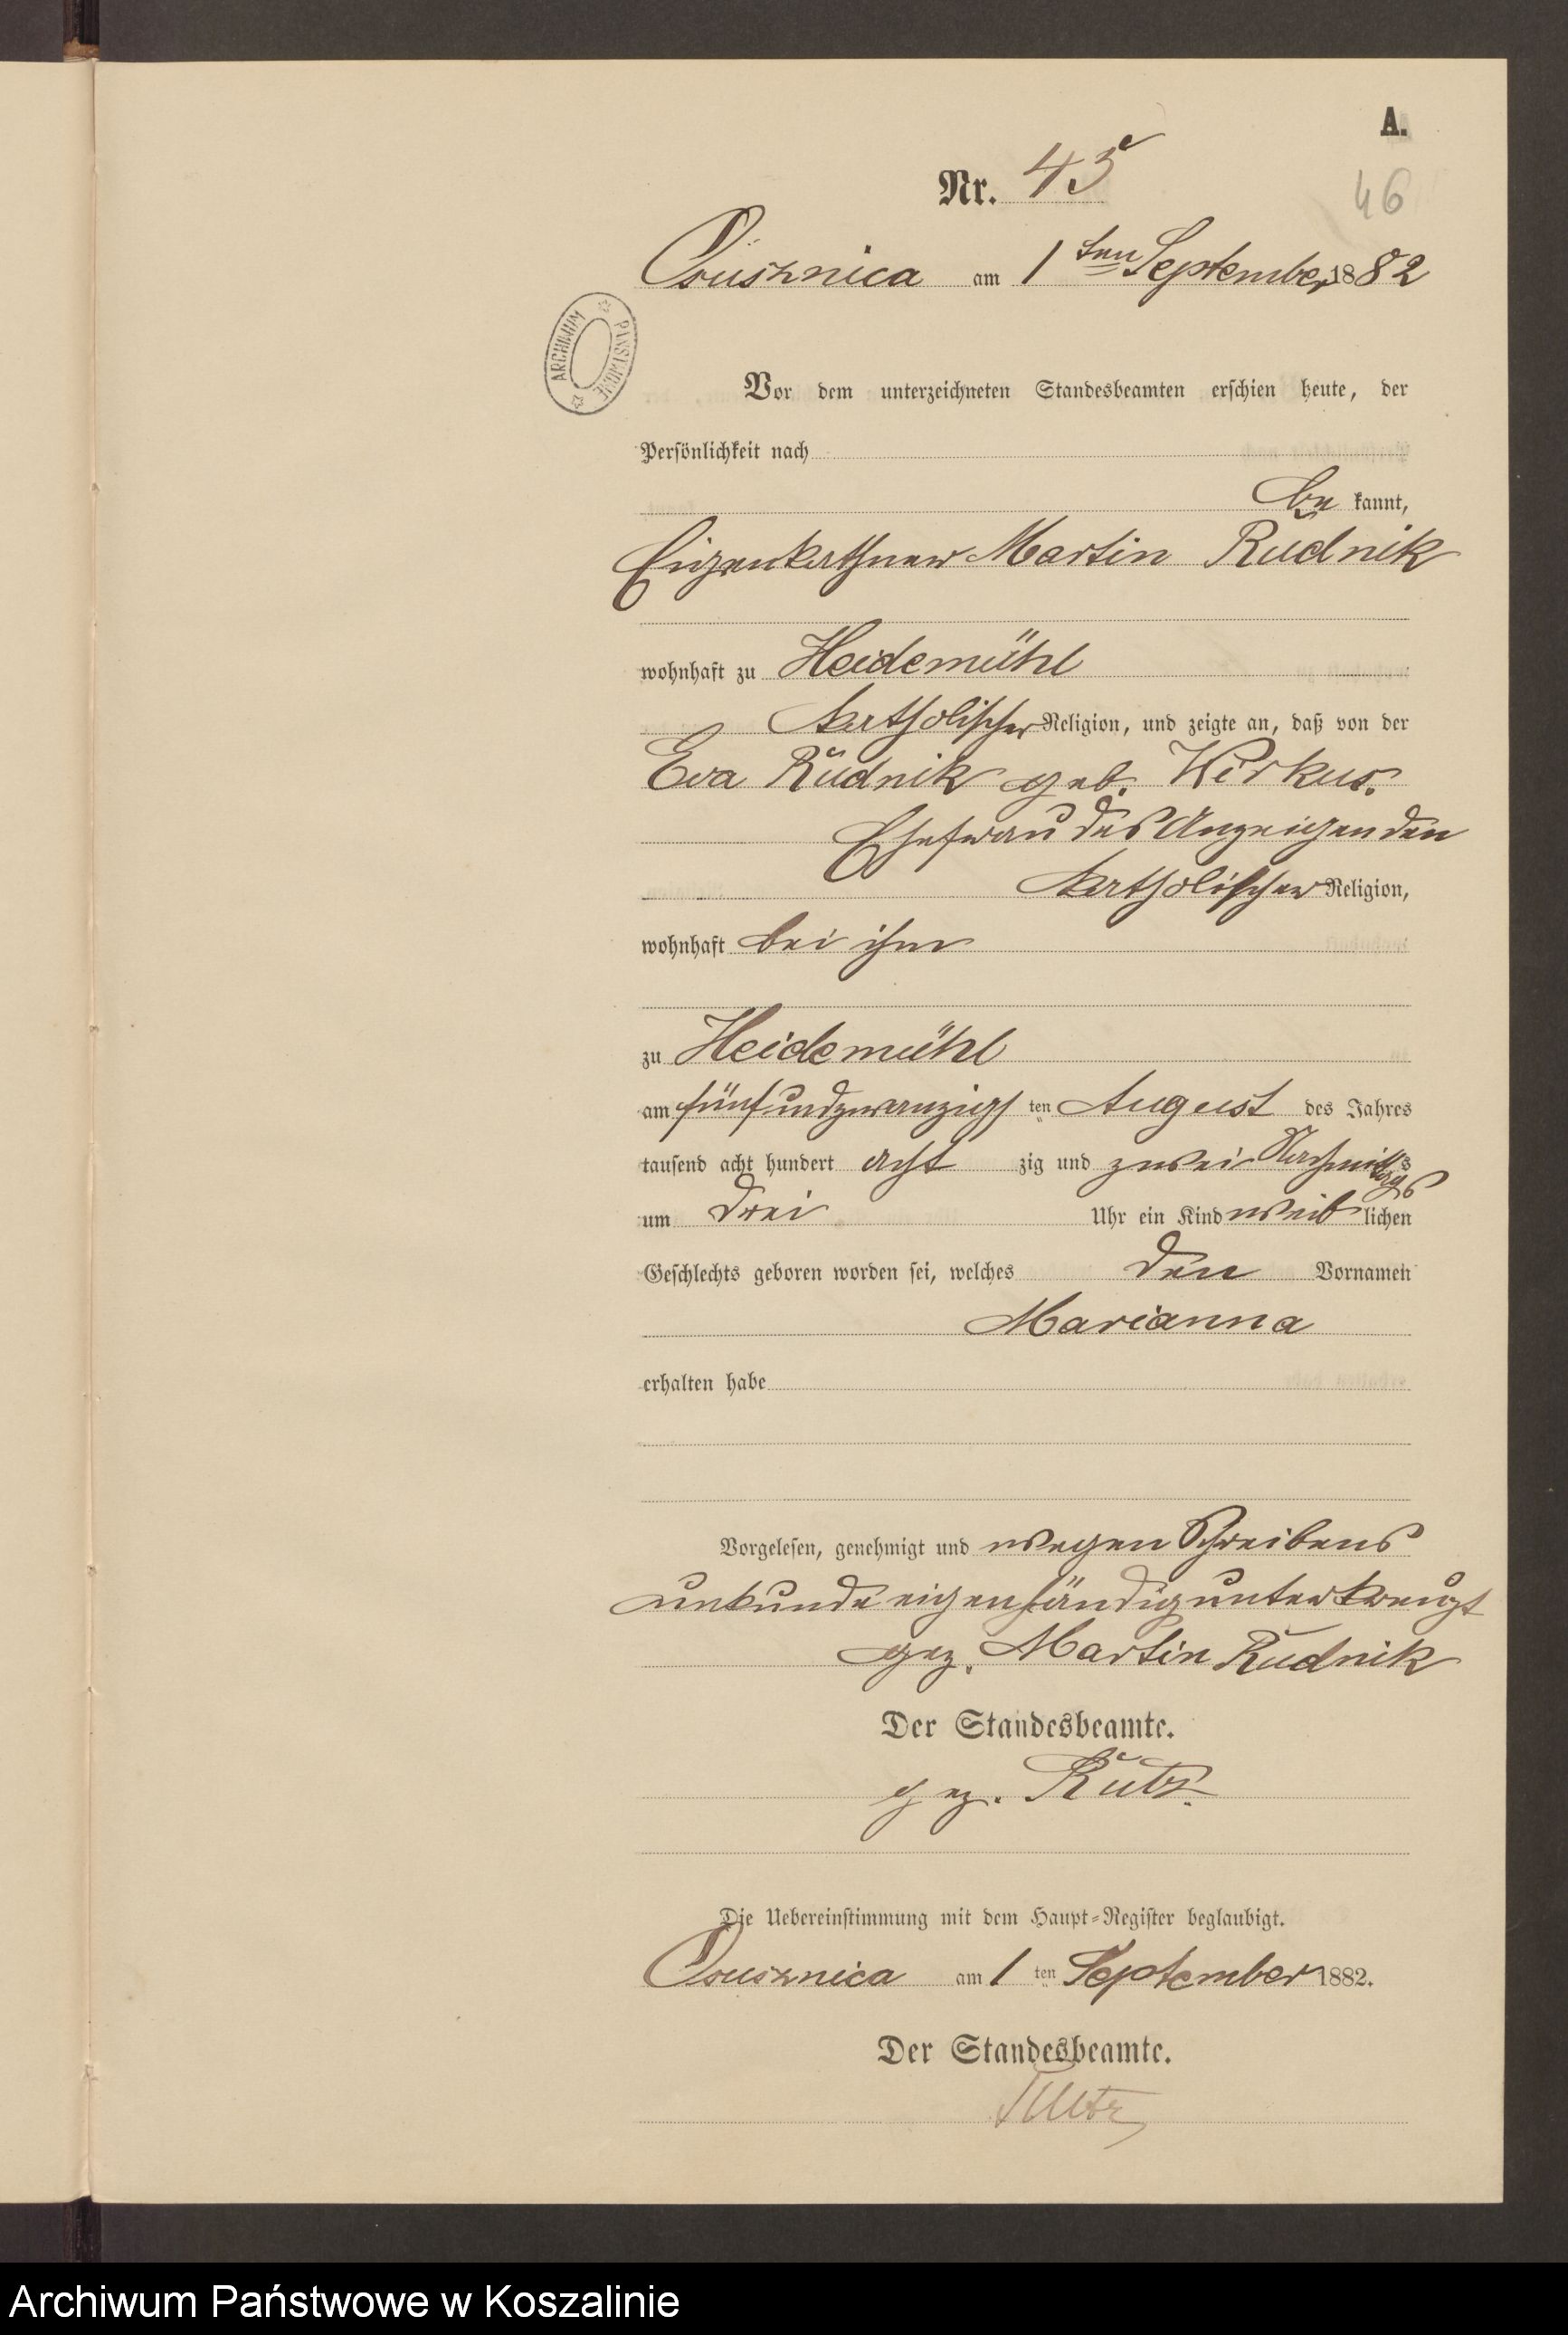 A.
Nr. 45
46
Osusznica am 1ten September 1882
ARCHIWUM PAŃSTWOWE
Vor dem unterzeichneten Standesbeamten erschien heute, der
Persönlichkeit nach
be kannt,
Eigenkathner Martin Rudnik
wohnhaft zu Heidemühl
katholischer Religion, und zeigte an, daß von der
Eva Rudnik geb. Wirkus.
Ehefrau des Anzeigenden
katholischer Religion,
wohnhaft bei ihm
zu Heidemühl
am fünfundzwanzigsten August des Jahres
tausend acht hundert acht zig und zwei Nachmittags
um drei Uhr ein Kind weib lichen
Geschlechts geboren worden sei, welches den Vornamen
Marianna
erhalten habe
Vorgelesen, genehmigt und wegen Schreibens
unkunde eigenhändig unterkreuzt
gez. Martin Rudnik
Der Standesbeamte.
gez. Kutz.
Die Uebereinstimmung mit dem Haupt-Register beglaubigt.
Osusznica am 1 ten September 1882.
Der Standesbeamte.
Archiwum Państwowe w Koszalinie